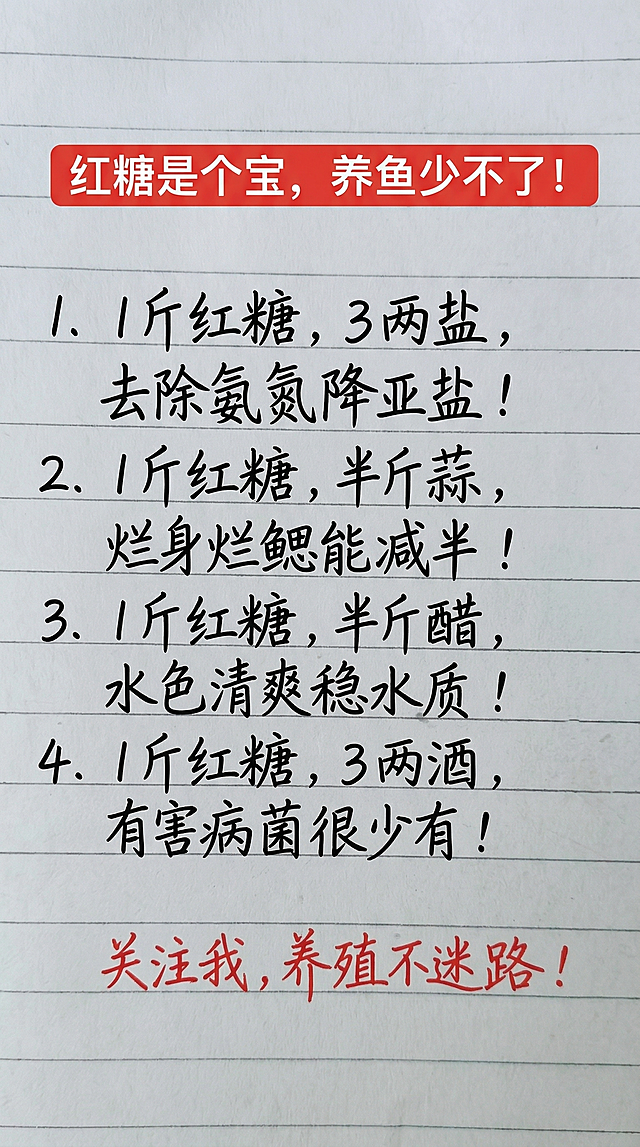 红糖是个宝，养鱼少不了！
1. 1斤红糖，3两盐，
去除氨氮降亚盐！
2. 1斤红糖，半斤蒜，
烂身烂鳃能减半！
3. 1斤红糖，半斤醋，
水色清爽稳水质！
4. 1斤红糖，3两酒，
有害病菌很少有！
关注我，养殖不迷路！